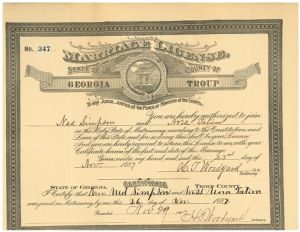 No. 347
MARRIAGE LICENSE.
STATE OF
COUNTY OF
GEORGIA
TROUP
To any Judge, Justice of the Peace or Minister of the Gospel.
You are hereby authorized to join
Ned Simpson and
in the Holy State of Matrimony, according to the Constitution and
Laws of this State and for so doing this shall be your License.
And you are hereby required to return this License to me, with your
Certificate hereon of the fact and date of the Marriage.
Given under my hand and seal this 23 day of
Nov. 1917
CERTIFICATE
STATE OF GEORGIA, TROUP COUNTY.
I Certify that Ned Simpson and
were joined in Matrimony by me this day of Nov. 1917
Recorded Nov 29